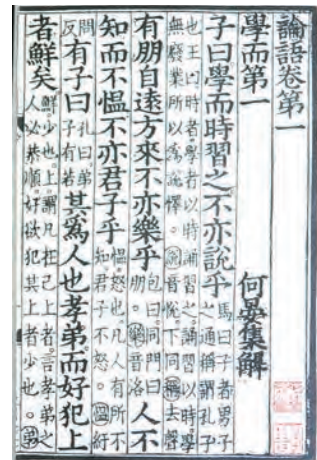 論語卷第一
學而第一 何晏集解
子曰學而時習之不亦說乎 馬曰子者男子之通稱謂孔子
也王曰時者學者以時誦習之誦習以時學無廢業所以爲說懌。說音悅下同稱去聲
有朋自遠方來不亦樂乎 包曰同門曰朋。樂音洛 人不
知而不慍不亦君子乎 慍怒也。凡人有所不知君子不怒。慍紆
問反 有子曰 孔曰弟子有若 其爲人也孝弟而好犯上
者鮮矣 鮮少也。上謂凡在己上者。言孝弟之人必恭順。好欲犯其上者少也。弟